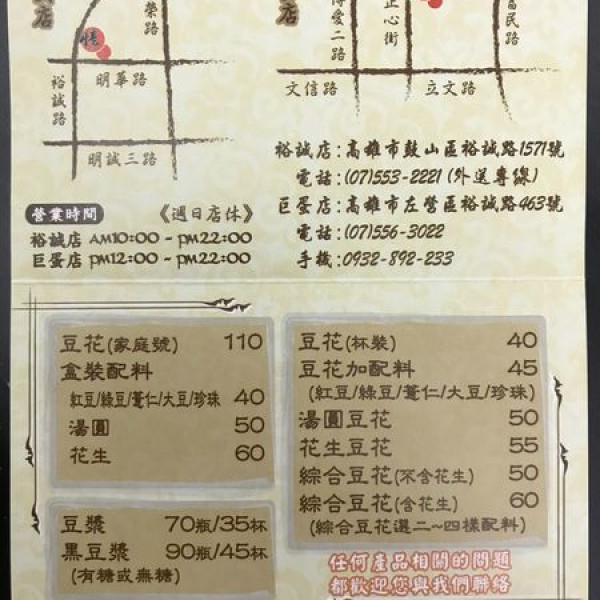 店
店
榮路
博愛二路
正心街
富民路
悟
裕誠路
明華路
明誠三路
文信路
立文路
裕誠店:高雄市鼓山區裕誠路1571號
電話:(07)553-2221(外送專線)
巨蛋店:高雄市左營區裕誠路463號
電話:(07)556-3022
手機:0932-892-233
營業時間
《週日店休》
裕誠店 AM10:00 - PM22:00
巨蛋店 PM12:00 - PM22:00
豆花(家庭號) 110
盒裝配料
紅豆/綠豆/薏仁/大豆/珍珠 40
湯圓 50
花生 60
豆漿 70瓶/35杯
黑豆漿 90瓶/45杯
(有糖或無糖)
豆花(杯裝) 40
豆花加配料 45
(紅豆/綠豆/薏仁/大豆/珍珠)
湯圓豆花 50
花生豆花 55
綜合豆花(不含花生) 50
綜合豆花(含花生) 60
(綜合豆花選二~四樣配料)
任何產品相關的問題
都歡迎您與我們聯絡